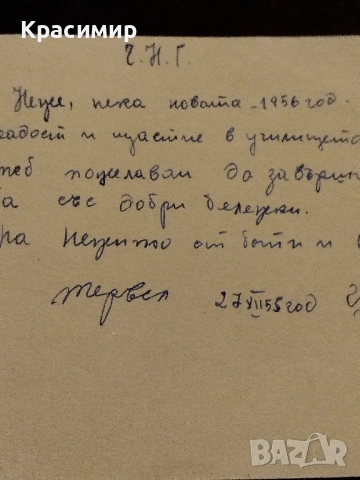 Красимир
Ч.Н.Г.
Нене, нека новата 1956 год.
радост и щастие в училището
пожелавам да завърш
та със добри бележки.
от бати и
Тервел 27 XII 55 год
BAZAR